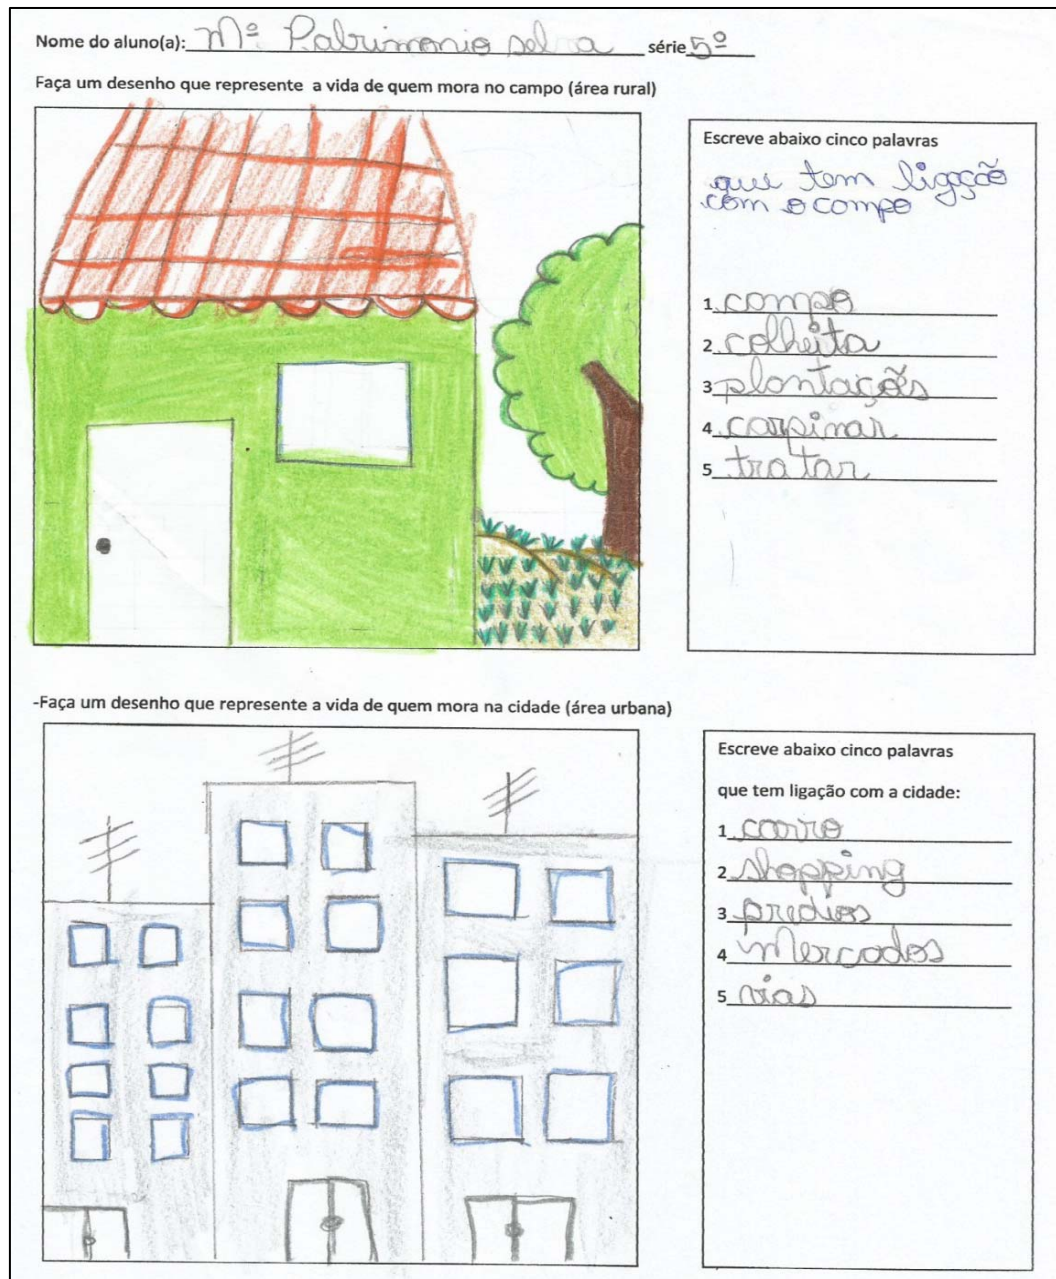 Nome do aluno(a): Mª Patrimonio selva série 5º
Faça um desenho que represente a vida de quem mora no campo (área rural)
Escreve abaixo cinco palavras
que tem ligação
com o campo
1 campo
2 colheita
3 plantações
4 carpinar
5 tratar
-Faça um desenho que represente a vida de quem mora na cidade (área urbana)
Escreve abaixo cinco palavras
que tem ligação com a cidade:
1 carro
2 shopping
3 predios
4 Mercados
5 vias